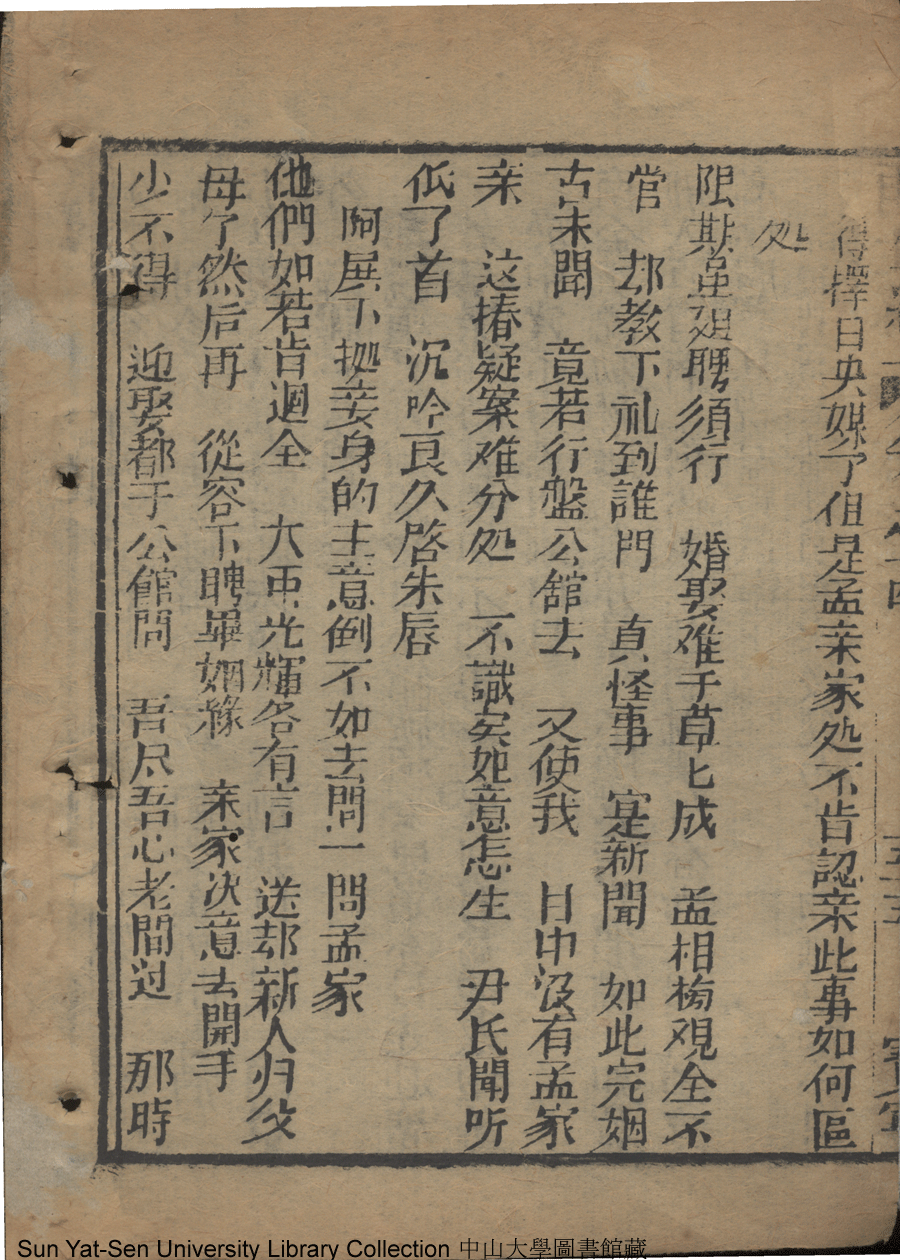 得擇日央媒了但是孟亲家処不肯認亲此事如何區
処
限期虽廹聘須行　婚娶难于草匕成　孟相傍观全不
管　却教下礼到誰門　真怪事　寔新聞　如此完姻
古未聞　竟若行盤公舘去　又使我　目中沒有孟家
亲　这摏疑案难分処　不識矦如意怎生　尹氏聞听
低了首　沉吟良久啓朱唇
阿屏下拠妾身的主意倒不如去問一問孟家
他們如若肯週全　大巿光輝各有言　送却新人归父
母了然后再　從容下聘畢姻緣　亲家决意去開手
少不得　迎娶都于公館間　吾尽吾心老問过　那時
Sun Yat-Sen University Library Collection 中山大學圖書館藏